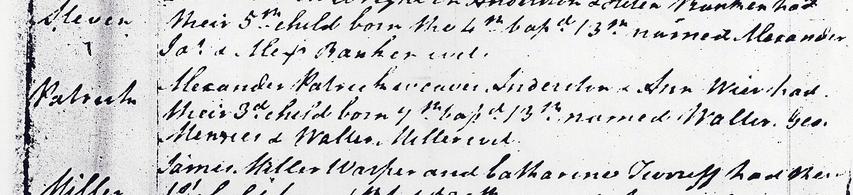 Steven
their 5th child born the 4th bapd 13th named Alexander
Jas & Alexr Barker wit.
Patrick
Alexander Patrick weaver Anderston & Ann Wier had
their 3d child born 7th bapd 13th named Walter. Geo.
Menzies & Walter Miller wit.
Miller
James Miller Warper and Catharine had their